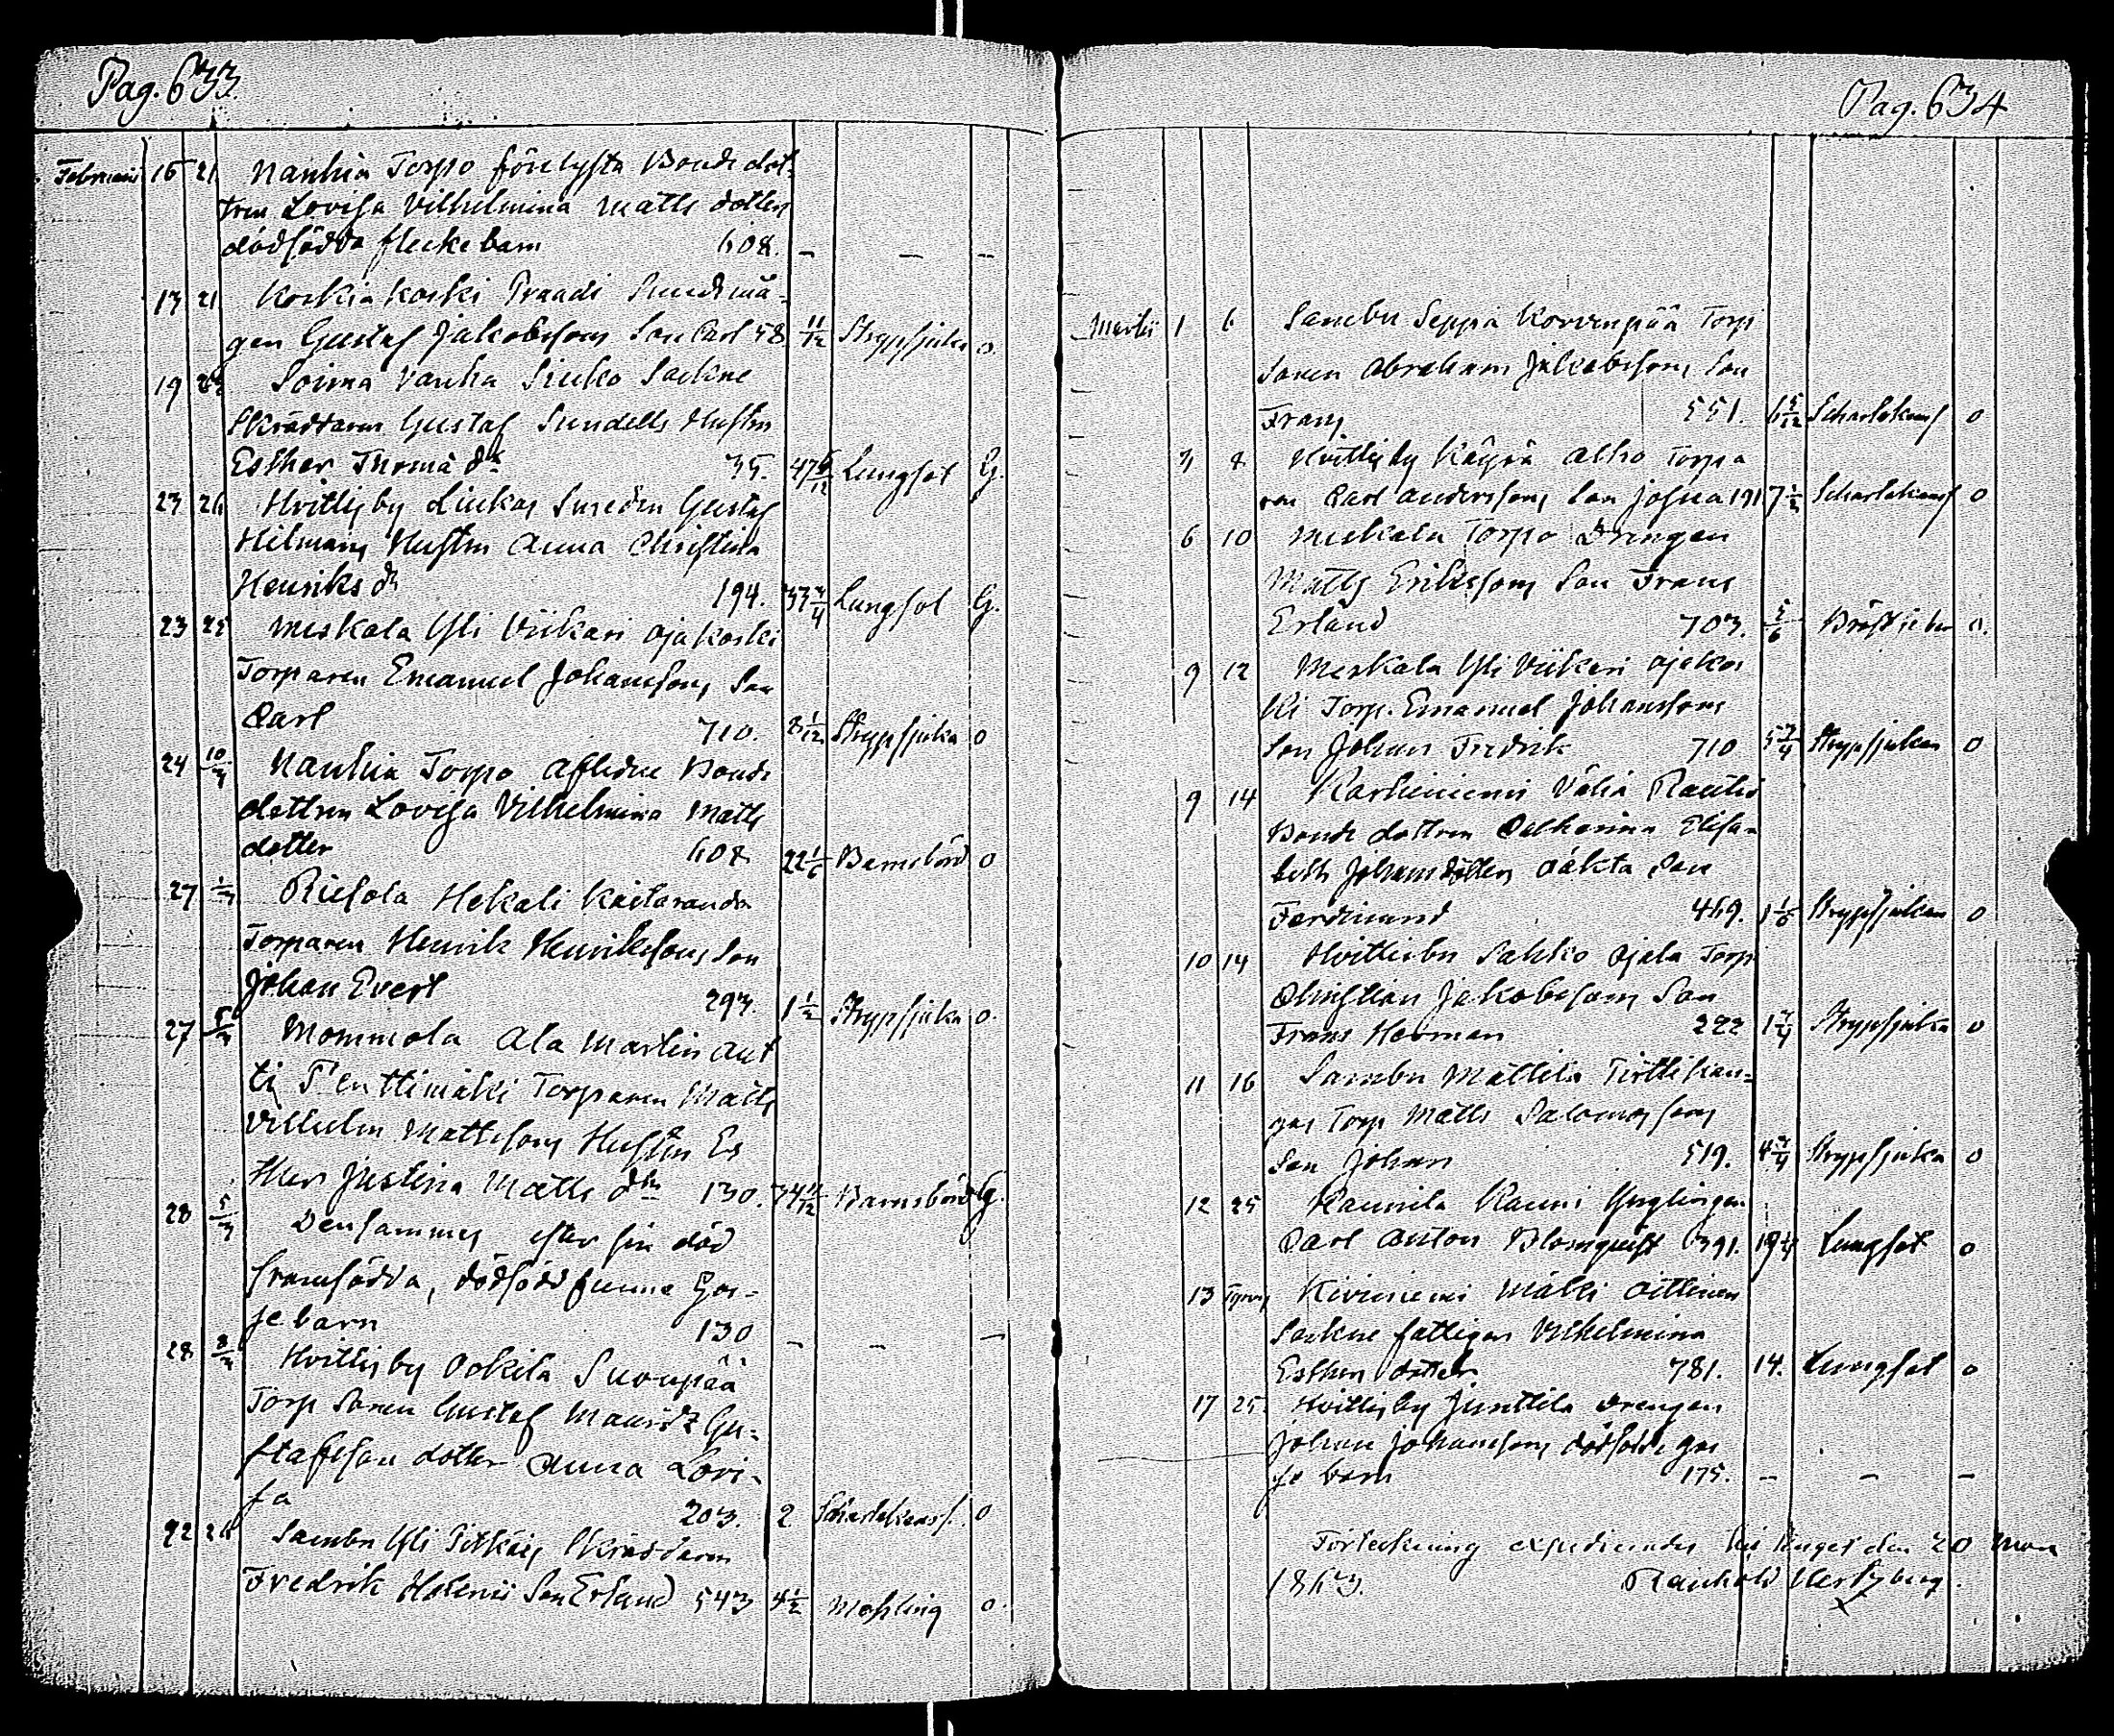 Pag. 633.
Februarii 15 21 Nanhia Torpo förelysta Bonde dot-
tren Lovisa Vilhelmina Matts dotters
dödfödda flickebarn 608. - - -
13 21 Koskis koski Praadi
gen Gustaf Jakobssons Son Carl 58 11/12 Strypsjuka o.
19 Soinia Vanha Sinko
Skräddaren Gustaf Sundells Hustru
Esther Thomä dr 35. 47 Lungsot G.
23 26 Hvittisby Liukas Smeden Gustaf
Hilmans Hustru Anna Christina
Henriks dr 194. 33 3/4 Lungsot G.
23 25 Meskala Yli Viikari Ojakoski
Torparen Emanuel Johanssons Son
Carl 710. 8 1/12 Strypsjuka o
24 10/3 Nanhia Torpo Aflidne Bonde
dottren Lovisa Vilhelmina Matts
dotter 608 22 1/6 Barnsbörd o
27 1/3 Riesola Hekali Kaitaranda
Torparen Henrik Henrikssons Son
Johan Evert 293. 1 1/2 Strypsjuka o.
27 5/3 Mommola Ala Martin Ant
ti Penttimäki Torparen Matts
Vilhelm Mattssons Hustru Es
ther Justina Matts dtr 130. 34 11/12 Barnsbörd G.
28 5/3 Densammes efter sin död
framfödda, dödfödd funne Gos-
sebarn 130 - - -
28 8/3 Hvittisby Ookila Suonpää
Torparen Gustaf Mauritz Gu-
stafsson dotter Anna Lovi-
sa 203. 2 Scharlakansf. o
22 Sambu Yli Pitkäis Skräddaren
Fredrik Son Erland 543 4 1/2 Messling o.
Pag. 634
Martii 1 6 Sambu Seppä Korvenpää Torp
Abraham Jakobssons Son
Frans 551. 6 5/12 Scharlakansf o
3 8 Hvittisby Käyrä Alho Torpa
ren Carl Anderssons Son Josua 191 7 1/2 Scharlakansf o
6 10 Meskala Torpo Drengen
Matts Erikssons Son Frans
Erland 703. 5/6 Bröstsjuka o.
9 12 Meskala Yli Viikari Ojakos
ki Torp. Emanuel Johanssons
Son Johan Fredrik 710 5 3/4 Strypsjukan o
9 14 Karhiniemi Rautio
Bonde dottren Catharina Elisa-
beth Johansdotters oäkta Son
Ferdinand 469. Strypsjukan o
10 14 Hvittisby Sahko Ojala Torp
Christian Jakobssons Son
Frans Herman 222 1 3/4 Strypsjuka o
11 16 Sambu Mattila Tirttikan-
gas Torp Matts Salomonssons
Son Johan 519. 4 3/4 Strypsjuka o
12 25 Raunila Rauni Ynglingen
Carl Anton Blomquist 391. Lungsot o
13 Kiviniemi Mäki Oittinen
fattigas Vilhelmina
Esthers dotter 781. 14. Lungsot o
17 25. Hvittisby Junttila Drengen
Johan Johanssons dödfödde gos
se barn 175. - - -
Förteckning expedierades den 20 Mars
1863. Reinhold Hertzberg.